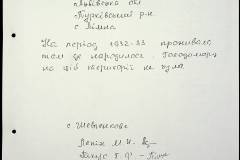 Львівська обл
Турківський р-н
с Лімна
На період 1932-33 проживала
там де народилася. Голодомору
на цій території не чула.
с Шевченкове